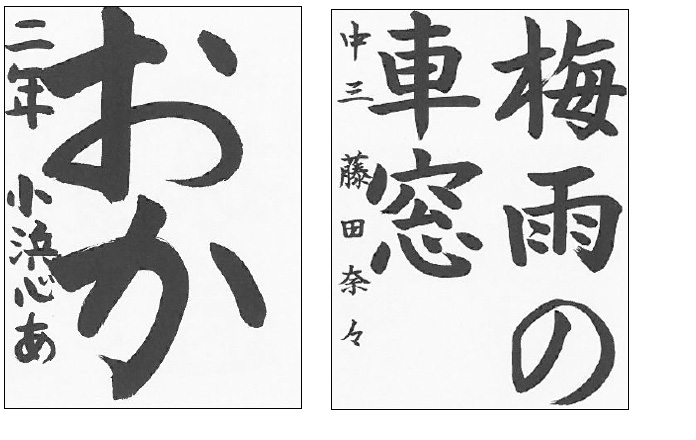 おか
二年 小浜心あ
梅雨の
車窓
中三 藤田奈々